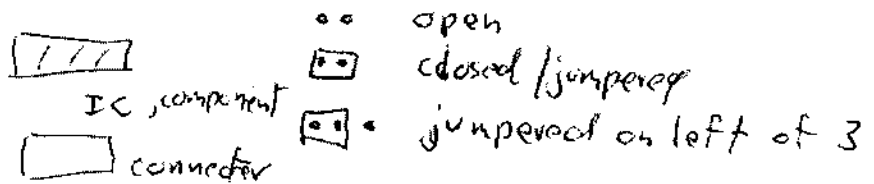 open
closed/jumpered
IC, component
jumpered on left of 3
connector